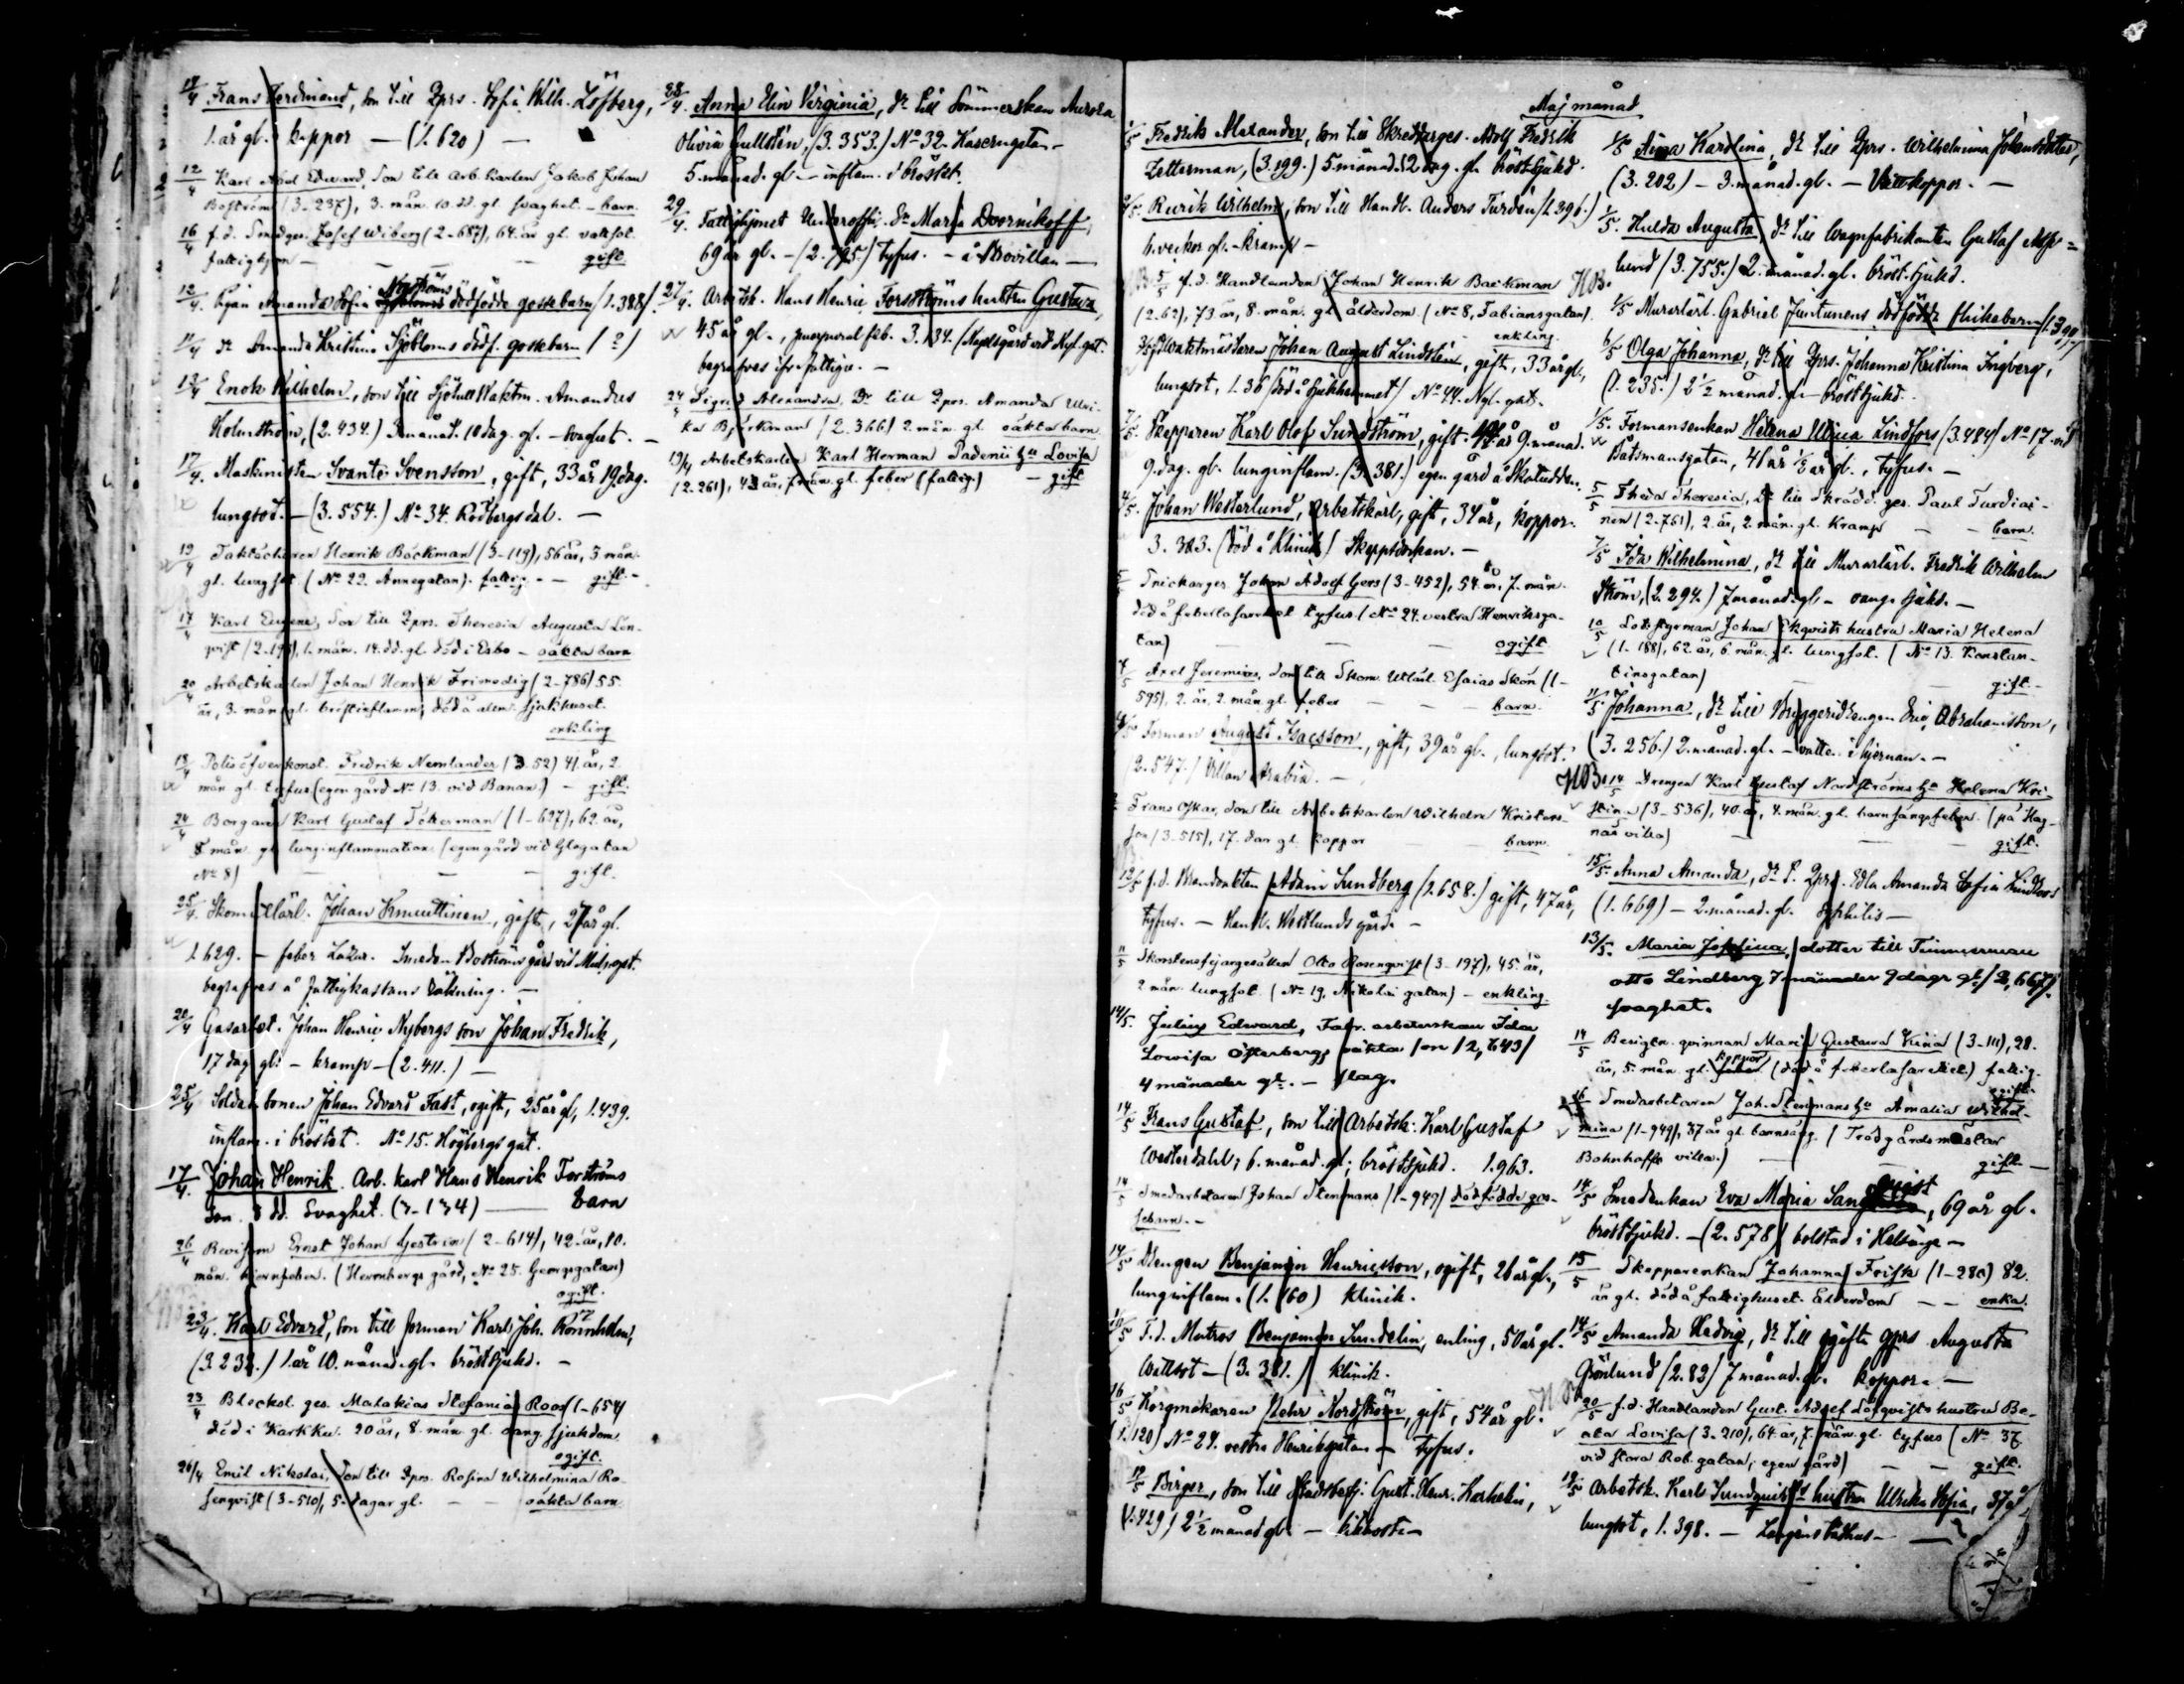 17/4 Frans Ferdinand, son till Qprs. Sofia Wilh. Löfberg,
1. år gl. koppor — (1.620) —
12/4 Karl Abel Edward, Son till Arb. karlen Jakob Johan
Boström (3-237), 3. mån. 10. dd. gl. svaghet. — barn.
16/4 f.d. Smedges. Josef Wiberg (2-687), 64. år gl. vattsot.
fattighjon — — — gift
12/4. Pigan Amanda Sofia Nyströms dödfödde gossebarn (1.388).
11/4 dr Amanda Kristina Sjöbloms dödf. gossebarn (?)
13/4 Enok Wilhelm, son till Sjötull Waktm. Amandus
Holmström, (2.434.) 3 månad. 10 dag. gl. — svaghet. —
17/4. Maskinisten Svante Svensson, gift, 33 år 19 dag.
lungsot. — (3.554.) No 34. Rödbergsdal. —
19/4 Takläckaren Henrik Bäckman (3-119), 56 år, 3 mån.
gl. lungsot (No 22. Annegatan). fattig. — — gift. —
17/4 Karl Eugene, Son till Qprs. Theresia Augusta Lön-
qvist (2-195), 1. mån. 14. dd. gl. död i Esbo — oäkta barn
20/4 Arbetskarlen Johan Henrik Frimodig (2-786) 55.
år, 3. mån. gl. bröstinflamm, död å alm. sjukhuset.
enkling
13/4 Polisöfverkonst. Fredrik Nemlander (3.52) 41. år, 2.
mån gl. tyfus. (egen gård No 13. vid Banan.) — gift.
24/4 Borgaren Karl Gustaf Tökerman (1-627), 62. år,
8. mån. gl. lunginflammation. (egen gård vid Glogatan
No 8) — — — gift.
25/4. Skom. Utlärl. Johan Kmuuttinen, gift, 27 år gl.
1.629. — feber Lazar. Smeden Boströms gård vid
begrafves å fattigkassans räkning. —
20/4 Gasarbet. Johan Henric Nybergs son Johan Fredrik,
17 dag gl. — kramp — (2.411.) —
25/4 Soldatsonen Johan Edvard Fast, ogift, 25 år gl, 1.439.
inflam. i bröstet. No 15. Högbergs gat.
17/4. Johan Henrik. Arb. karl Hans Henrik Forströms
Son. 8 dd. Svaghet. (3-134) — barn
26/4 Revisorn Ernst Johan Gestrin (2-614), 42. år, 10.
mån. hjernfeber. (Heronbergs gård, No 25. Georgsgatan)
ogift.
23/4. Karl Edvard, son till forman Karl Joh. Rönnholm,
(3.232.) 1. år 10. månad. gl. bröstsjukd. —
23/4 Blecksl. ges. Malakias Stefanias Roos (1-654)
död i Karkku. 20 år, 8. mån. gl. sjukdom.
ogift.
26/4 Emil Nikolai, Son till Qprs. Rosina Wilhelmina Ro-
senqvist (3-510), 5. dagar gl. — — oäkta barn.
28/4. Anna Elin Virginia, dr till Sömmerskan Aurora
Olivia Gullstén, (3.353.) No 32. Kaserngatan —
5. månad. gl. — inflam. i bröstet.
29/4. Fattighjonet Underoffic. Dr Maria Dvornikoff,
69 år gl. — (2.795.) tyfus. — å —
27/4. Arbetsk. Hans Henric Forsströms hustru Gustava,
45 år gl., puerperal feb. 3.134.
begrafves för fattige. —
24/4 Sigrid Alexandra, Dr till Qprs. Amanda Ulri-
ka Björkman (2.366.) 2. mån. gl. oäkta barn.
19/4 Arbetskarlen Karl Herman Padenii hu Lovisa
(2.261), 43 år, gl. feber (fattig.) — gift
Maj månad
1/5 Fredrik Alexander, son till Skreddarges. Adolf Fredrik
Zetterman, (3.199.) 5. månad. 12 dag. gl. bröstsjukd.
2/5. Rurik Wilhelm, son till Handl. Anders Turdén (1.396.)
6. veckor gl. — kramp —
5/5 f.d. Handlanden Johan Henrik Backman
(2.62), 73 år, 8. mån. gl. ålderdom. (No 8, Fabiansgatan).
enkling.
3/5 fd Waktmästaren Johan August Lindstén, gift, 33 år gl.,
lungsot, 1.36 (död å Sjukhemmet) No 44. Nyl. gat.
7/5. Skepparen Karl Olof Sundström, gift. år 9. månad.
9. dag. gl. lunginflam. (3.381.) egen gård å Skatudden.
4/5. Johan Westerlund, arbetskarl, gift, 34 år, koppor.
3.383. (död å Klinik) Skeppsdockan. —
5/5 Snickarges. Johan Adolf Gers (3-452), 54. år, 7. mån.
död å feberlasarettet tyfus. (No 24. vestra Henriksga-
tan) — — — ogift
8/5 Axel Jeremias, Son till Skom. Utlärl. Esaias Skön (1-
595), 2. år, 2. mån. gl. feber — — barn.
Forman August Isacsson, gift, 39 år gl., lungsot.
(2.547.) Villan Arabia. —
Frans Oskar, Son till Arbetskarlen Wilhelm Kristers-
son (3-515), 17. dar gl. koppor — barn.
12/5 f.d. Brandvakten Adam Sundberg (2.658.) gift, 47 år,
tyfus. — Handl. Westlunds gård. —
11/5 Skorstensfejargesällen Otto Rosenqvist (3-197), 45. år,
2 mån. lungsot. (No 19. Nikolai gatan) — enkling.
14/5. Julius Edward, Fabr. arbeterskan Ida
Lovisa Österbergs oäkta son (2,643)
4 månader gl. — slag.
14/5 Frans Gustaf, son till Arbetsk. Karl Gustaf
Westerdahl; 6. månad. gl.; bröstsjukd. 1.963.
14/5 Smedarbetaren Johan Stenmans (1-949) dödfödde gos-
sebarn. —
14/5 Drengen Benjamin Henricsson, ogift, 26 år gl.,
lunginflam. (1.160) Klinik.
F.d. Matros Benjamin Sundelin, enling, 50 år gl.
Wattsot — (3.381.) Klinik.
16/5 Korgmakaren Petter Nordström, gift, 54 år gl.
(1.120) No 24. vestra Henriksgatan — tyfus.
17/5 Birger, son till Stadsbefj. Gust. Henr. Karhelin,
(1.429) 2½ månad gl. — kikhosta —
1/5 Aina Karolina, dr till Qprs. Wilhelmina Johansdotter,
(3.202) — 3. månad. gl. — Vattkoppor. —
1/5. Hulda Augusta, dr till Vagnfabrikanten Gustaf Asp=
lund (3.755.) 2. månad. gl. bröst. sjukd.
NB. 1/5 Murarlärl. Gabriel Juntunens dödfödda flickebarn
6/5 Olga Johanna, dr till Qprs. Johanna Kristina Ingberg,
(1.235.) 2½ månad. gl. — bröstsjukd.
1/5. Formansenkan Helena Ulrica Lindfors (3.484) No 17. vid
Båtsmansgatan, 41 år ½ år gl., tyfus. —
5/5 Theda Theresia, Dr till Skrädd. ges. Paul Turdiai-
nen (2-761), 2. år, 2. mån. gl. kramp — barn.
7/5 Ida Wilhelmina, dr till Murarlärl. Fredrik Wilhelm
Ström, (2.294.) 7 månad. gl. — sjukd. —
10/5 Lotsstyrman Johan Ekqvists hustru Maria Helena
(1-188), 62. år, 6. mån. gl. lungsot. (No 13. Konstan-
tinsgatan) — — gift. —
11/5 Johanna, dr till Bryggeridrengen Eric Abrahamsson,
(3.256.) 2. månad. gl. — vatten i hjernan. —
NB. 14/5 Drengen Karl Gustaf Nordströms hu Helena Kri-
stina (3-536), 40. år, 4. mån. gl. barnsängsfeber. (på Hag-
näs villa) — — gift.
15/5. Anna Amanda, dr t. Qprs. Edla Amanda Sofia Lindroos
(1.669) — 2. månad. gl. Syphilis —
13/5. Maria Josefina, dotter till Timmerman
Otto Lindberg 7 månader 9 dagr gl. (2,667).
svaghet.
14/5 Besigtn. qvinnan Maria Gustava Trina (3-111), 28.
år, 5. mån. gl. koppor (död å feberlasarettet) fattig.
ogift.
16/5 Smedarbetaren Joh. Stenmans hu Amalia Wilhel-
mina (1-949), 37 år gl. barnsäng. (Trädgårdsmästar
Bohnhoffs villa.) — gift. —
14/5 Smedenkan Eva Maria Sanqvist, 69 år gl.
bröstsjukd. — (2.578) bolstad i Helsinge —
15/5 Skepparenkan Johanna Frisk (1-280) 82.
år gl. död å fattighuset. Ålderdom — — enka.
14/5 Amanda Hedvig, dr till ogifta qprs Augusta
Grönlund (2.82) 7 månad. gl. koppor. —
NB 20/5 f.d. Handlanden Gust. Adolf Löfqvists hustru Be-
ata Lovisa (3-210), 64. år, 7. mån. gl. tyfus (No 37
vid stora Rob. gatan, egen gård) — — gift.
19/5 Arbetsk. Karl Sundqvists hustru Ulrika Sofia, 37 år
lungsot, 1.398. —